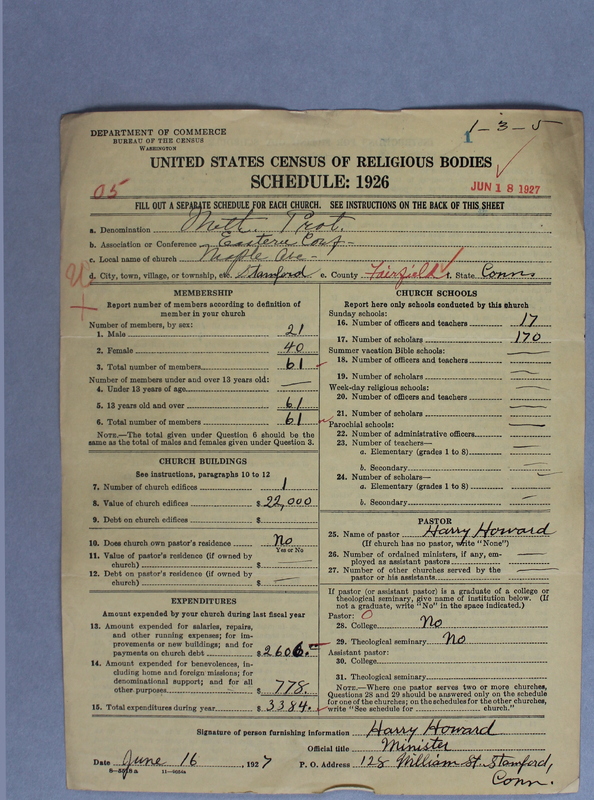 1-3-5
1
DEPARTMENT OF COMMERCE
BUREAU OF THE CENSUS
WASHINGTON
UNITED STATES CENSUS OF RELIGIOUS BODIES
SCHEDULE: 1926
JUN 18 1927
05
FILL OUT A SEPARATE SCHEDULE FOR EACH CHURCH. SEE INSTRUCTIONS ON THE BACK OF THIS SHEET
a. Denomination Meth. Prot.
b. Association or Conference Eastern Conf-
c. Local name of church Maple Ave-
d. City, town, village, or township, etc. Stamford e. County Fairfield f. State Conn
MEMBERSHIP
Report number of members according to definition of
member in your church
Number of members, by sex:
1. Male 21
2. Female 40
3. Total number of members 61
Number of members under and over 13 years old:
4. Under 13 years of age —
5. 13 years old and over 61
6. Total number of members 61
NOTE.—The total given under Question 6 should be the
same as the total of males and females given under Question 3.
CHURCH BUILDINGS
See instructions, paragraphs 10 to 12
7. Number of church edifices 1
8. Value of church edifices $22,000
9. Debt on church edifices $
10. Does church own pastor's residence No
Yes or No
11. Value of pastor's residence (if owned by
church) $ —
12. Debt on pastor's residence (if owned by
church) $ —
EXPENDITURES
Amount expended by your church during last fiscal year
13. Amount expended for salaries, repairs,
and other running expenses; for im-
provements or new buildings; and for
payments on church debt $2606.
14. Amount expended for benevolences, in-
cluding home and foreign missions; for
denominational support; and for all
other purposes $778.
15. Total expenditures during year $3384.
CHURCH SCHOOLS
Report here only schools conducted by this church
Sunday schools:
16. Number of officers and teachers 17
17. Number of scholars 170
Summer vacation Bible schools:
18. Number of officers and teachers —
19. Number of scholars —
Week-day religious schools:
20. Number of officers and teachers —
21. Number of scholars —
Parochial schools:
22. Number of administrative officers —
23. Number of teachers—
a. Elementary (grades 1 to 8) —
b. Secondary —
24. Number of scholars—
a. Elementary (grades 1 to 8) —
b. Secondary —
PASTOR
25. Name of pastor Harry Howard
(If church has no pastor, write "None")
26. Number of ordained ministers, if any, em-
ployed as assistant pastors —
27. Number of other churches served by the
pastor or his assistants —
If pastor (or assistant pastor) is a graduate of a college or
theological seminary, give name of institution below. (If
not a graduate, write "No" in the space indicated.)
Pastor: O
28. College No
29. Theological seminary No
Assistant pastor:
30. College
31. Theological seminary
NOTE.—Where one pastor serves two or more churches,
Questions 28 and 29 should be answered only on the schedule
for one of the churches; on the schedules for the other churches,
write "See schedule for church."
Signature of person furnishing information Harry Howard
Official title Minister
Date June 16, 1927 P. O. Address 128 William St. Stamford,
Conn.